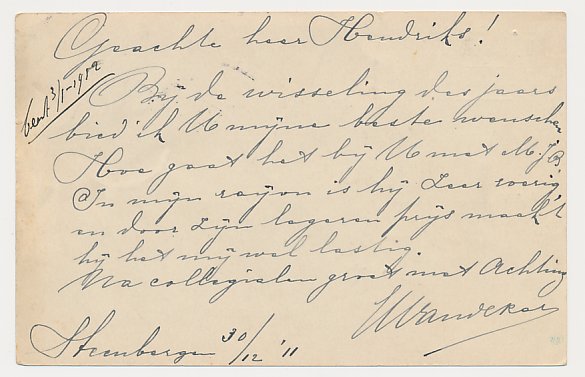 Geachte heer Hendriks!
Bij de wisseling des jaars
bied ik U mijne beste wenschen
Hoe gaat het bij U met M.J.B.
In mijn rayon is hij zeer ijverig
en door zijn lageren prijs maakt
hij het mij wel lastig.
Na collegialen groet met Achting
Steenbergen 30/12 '11